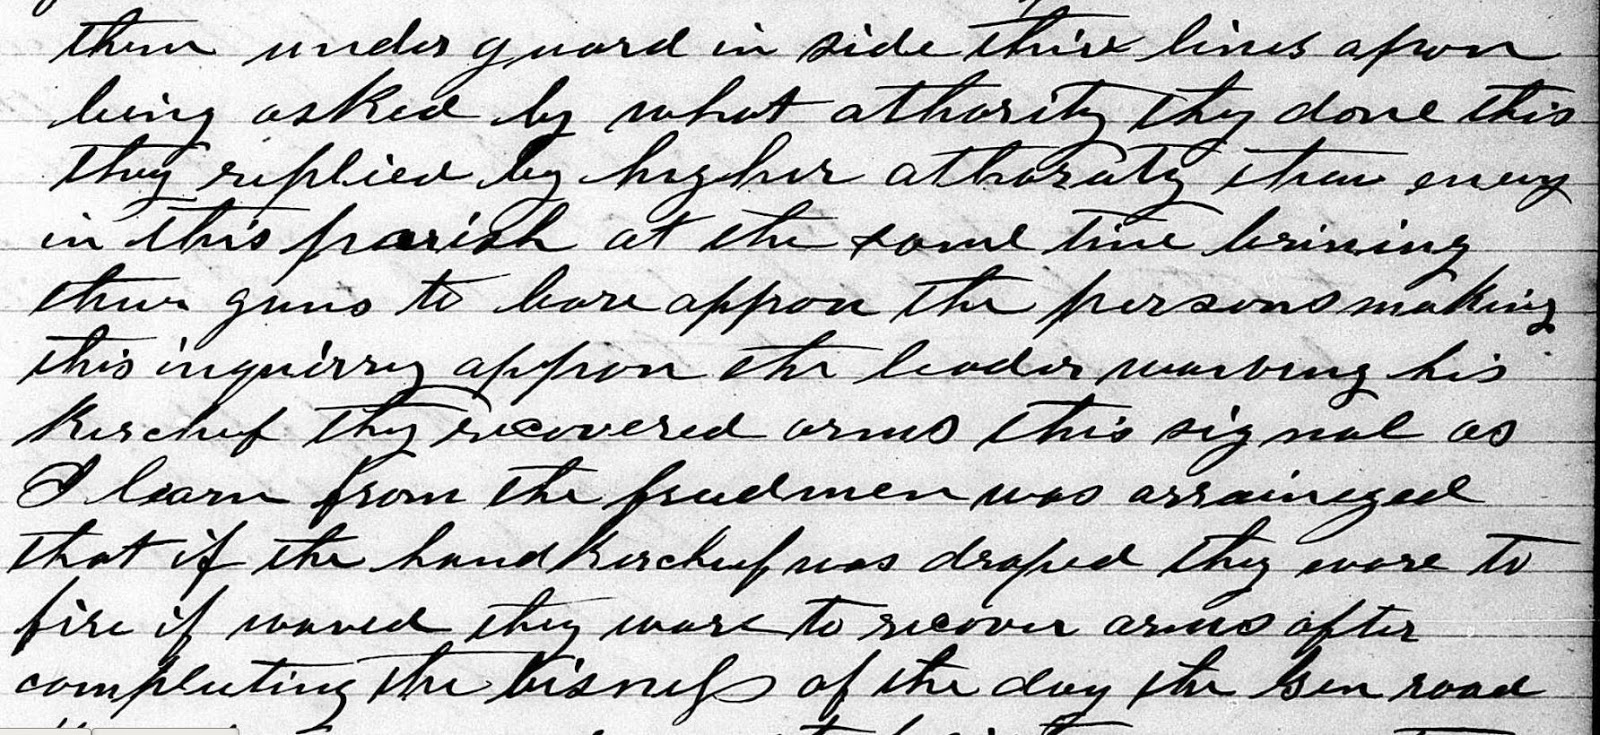 them under guard in side thire lines apon
being asked by what athority they done this
they replied by higher athoraty than eney
in this parish at the same time brining
thur guns to bare appon the persons making
this inquirry appon the leader waveing his
Kerchef they recovered arms this signal as
I learn from the freedmen was arrainged
that if the handkercheif was draped they ware to
fire if waved they ware to recover arms after
compleeting the bisness of the day the Gen road